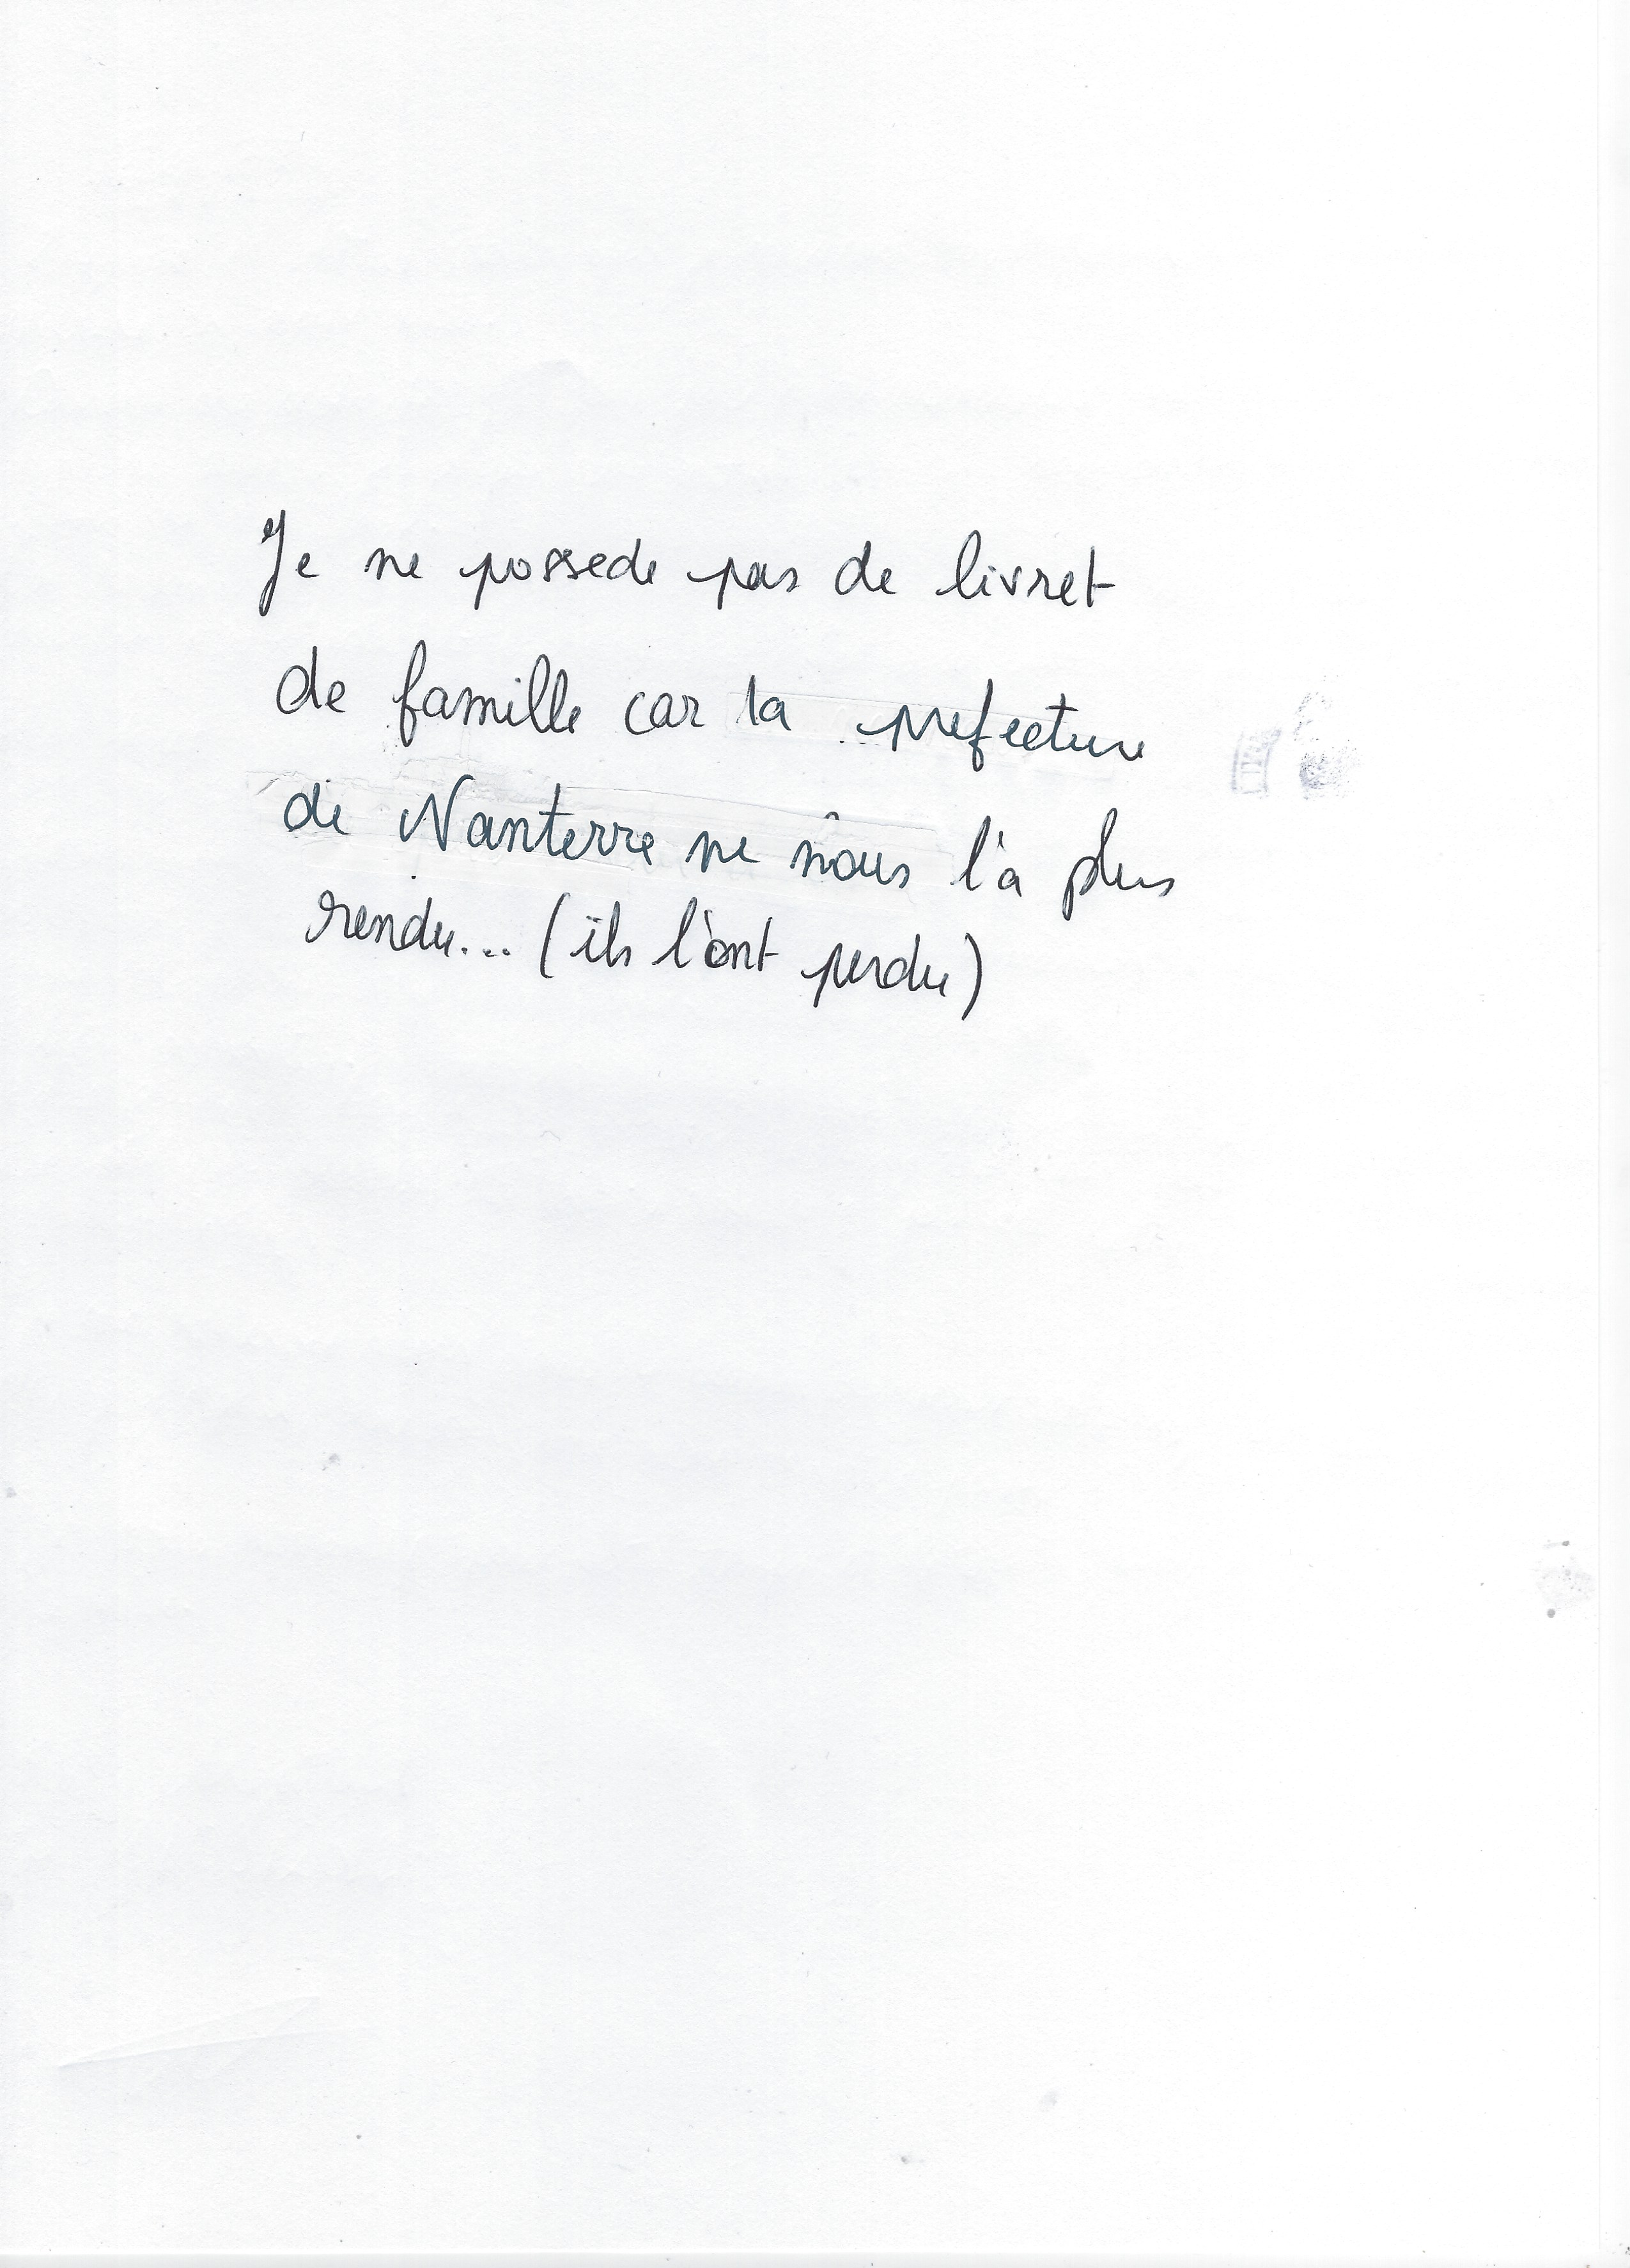 Je ne possede pas de livret
de famille car la prefecture
de Nanterre ne nous l'a plus
rendu... (ils l'ont perdu)